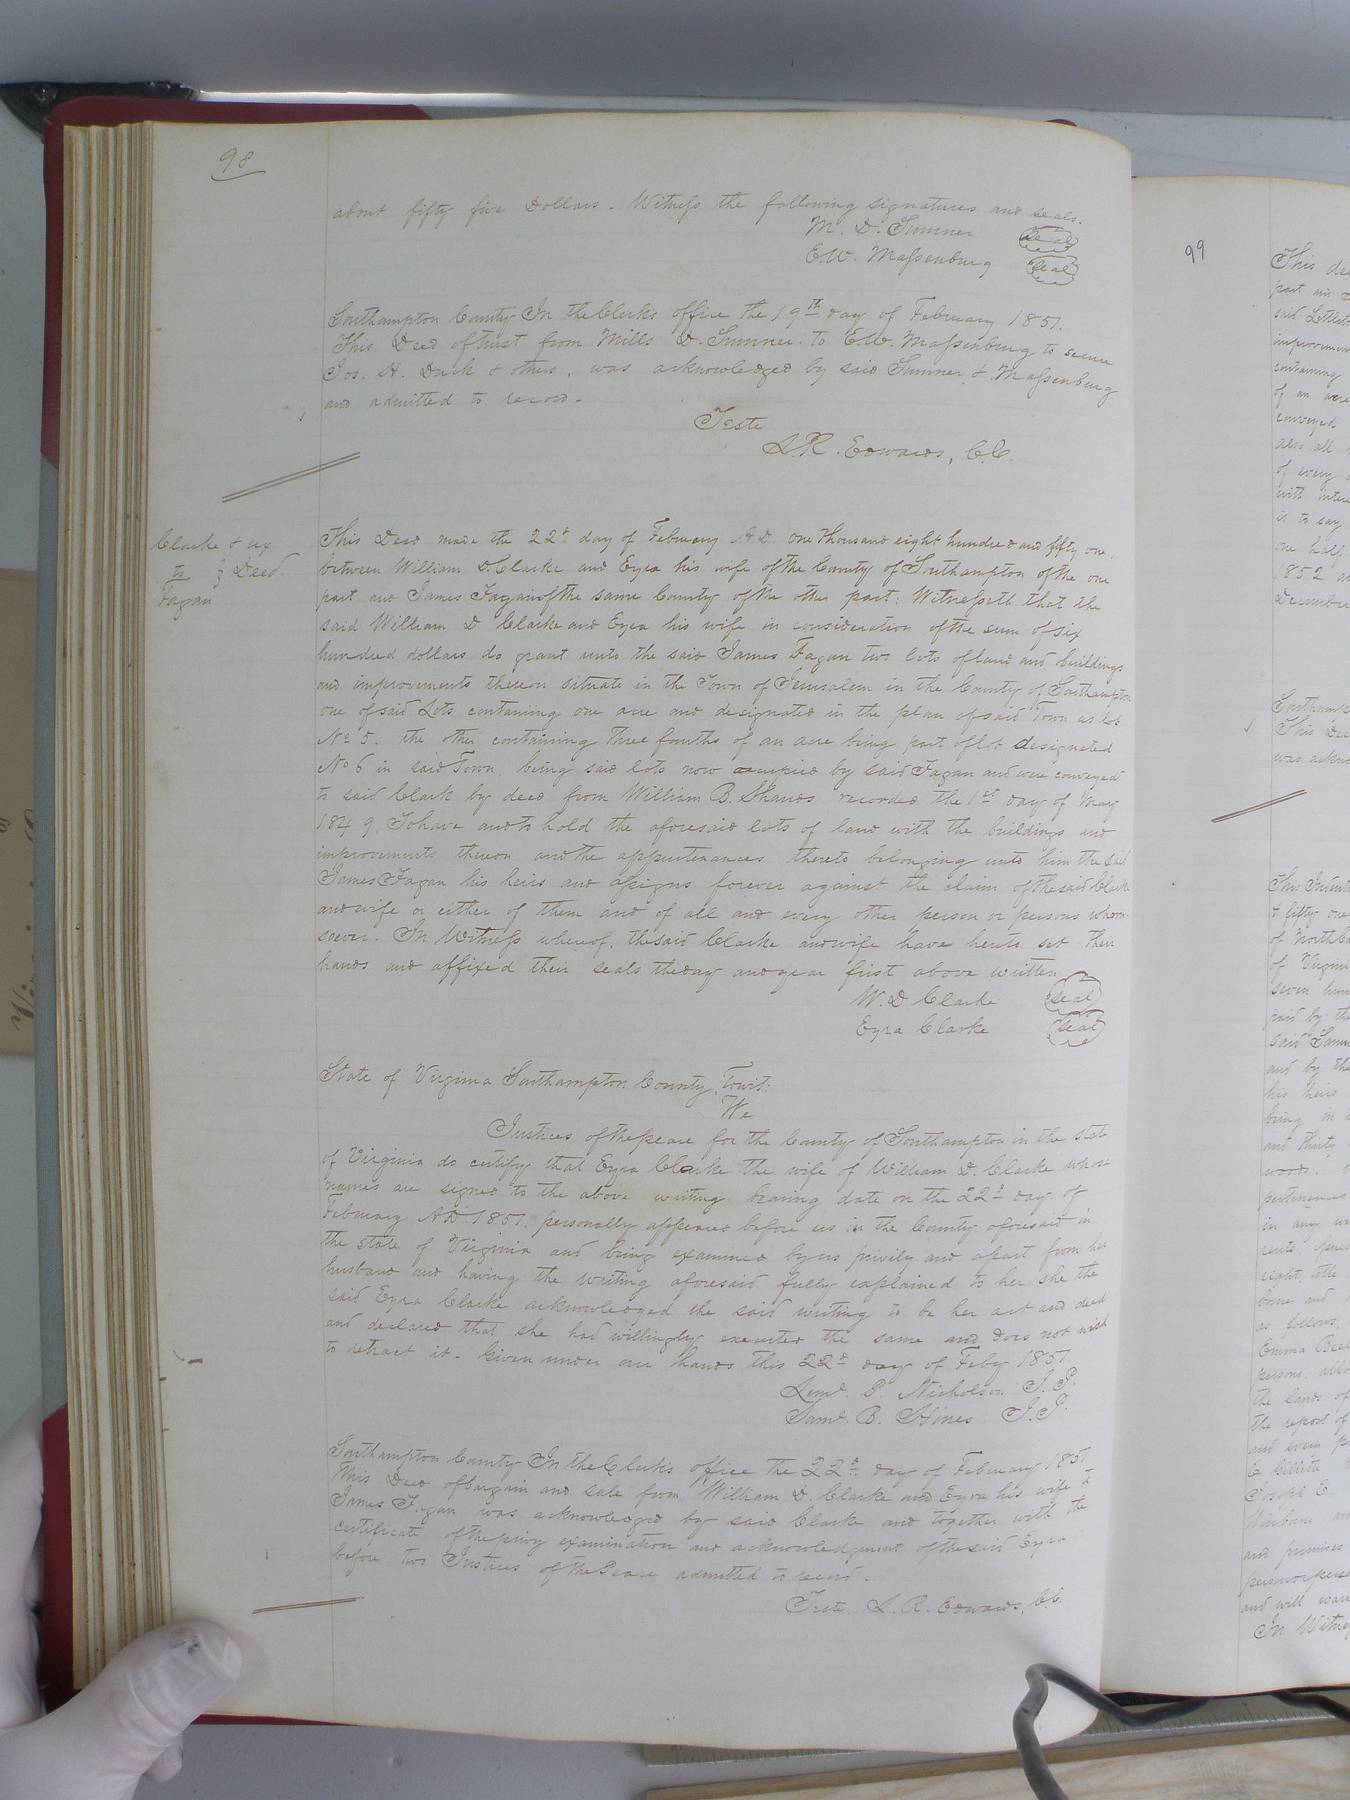 98
about fifty five Dollars. Witness the following signatures and seals.
M. D. Sumner seal
E.W. Massenburg seal
Southampton County In the Clerks office the 19th day of February 1851.
This Deed of trust from Mills D. Sumner to E.W. Massenburg to secure
Jos. H. & others, was acknowledged by said Sumner & Massenburg
and admitted to record.
Teste
L.R. Edwards, C.C.
Clarke & ux
to } Deed.
Fagan
This Deed made the 22d day of February A D one thousand eight hundred and fifty one,
between William D Clarke and Ezra his wife of the County of Southampton of the one
part and James Fagan of the same County of the other part; Witnesseth that the
said William D Clarke and Ezra his wife in consideration of the sum of six
hundred dollars do grant unto the said James Fagan two lots of land and buildings
and improvements thereon situate in the Town of Jerusalem in the County of Southampton
one of said Lots containing one acre and designated in the plan of said Town as lot
No 5. the other containing three fourths of an acre being part of lot designated
No 6 in said Town being said lots now occupied by said Fagan and were conveyed
to said Clark by deed from William B. Shands recorded the 1st day of May
1849. To have and to hold the aforesaid lots of land with the buildings and
improvements thereon and the appurtenances thereto belonging unto him the said
James Fagan his heirs and assigns forever against the claim of the said Clarke
and wife or either of them and of all and every other person or persons whom-
soever. In Witness whereof, the said Clarke and wife have hereto set their
hands and affixed their seals the day and year first above written
W. D Clarke seal
Ezra Clarke seal
State of Virginia Southampton County, Towit:
We
Justices of the peace for the County of Southampton in the state
of Virginia do certify that Ezra Clarke the wife of William D. Clarke whose
names are signed to the above writing bearing date on the 22d day of
February AD. 1851. personally appeared before us in the County aforesaid in
the state of Virginia and being examined by us privily and apart from her
husband and having the writing aforesaid fully explained to her she the
said Ezra Clarke acknowledged the said writing to be her act and deed
and declared that she had willingly executed the same and does not wish
to retract it. Given under our hands this 22d day of Feby 1851
P. Nicholson J.P.
Saml. B. Hines J.P.
Southampton County In the Clerk's office the 22d day of February 1851
This Deed of bargain and sale from William D. Clarke and Ezra his wife to
James Fagan was acknowledged by said Clarke and together with the
certificate of the privy examination and acknowledgment of the said Ezra
before two Justices of the Peace admitted to record.
Teste L. R. Edwards, C.C.
99
This
part
said
improvement
containing
of an acre
conveyed
also all
of every
with
is to say
one half
1852
December
This
was
& fifty one
of
of
seven
paid by the
said
and by the
his heirs
being
and thirty
woods,
in any
rents,
right, title
as follows,
Emma
persons,
the lands of
the report of
and every
Joseph E
and premises
and will
In